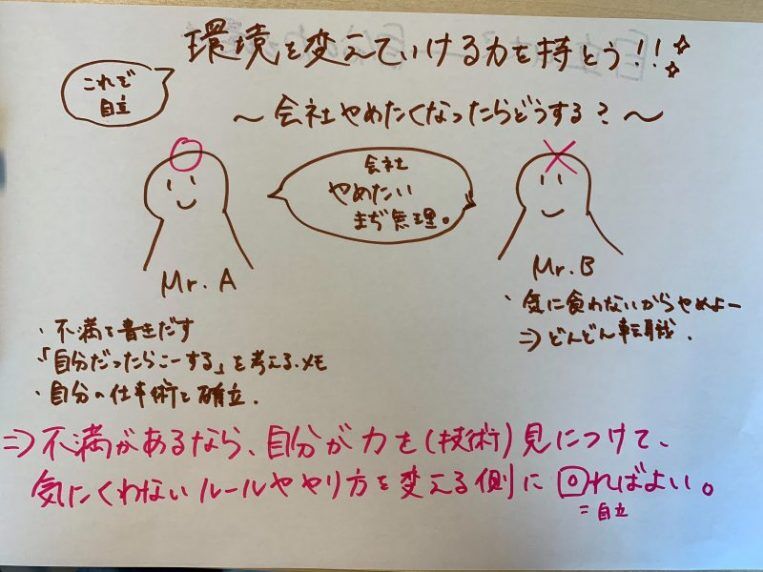 環境を変えていける力を持とう!!
これで
自立
〜会社やめたくなったらどうする?〜
会社
やめたい
まぢ無理。
Mr. A
Mr. B
・不満を書きだす
「自分だったらこーする」を考える、メモ
・自分の仕事術を確立.
・気に食わないからやめよー
⇒どんどん転職.
⇒不満があるなら、自分が力を(技術)見につけて、
気にくわないルールややり方を変える側に回ればよい。
=自立